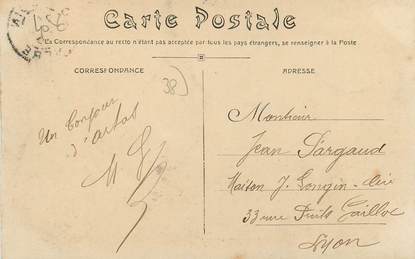 Carte Postale
La Correspondance au recto n'étant pas acceptée par tous les pays étrangers, se renseigner à la Poste
CORRESPONDANCE
ADRESSE
38
Un bonjour
d'Artas
Monsieur
Jean Sargaud
Maison J. Longin
33 rue Puits Gaillot
Lyon